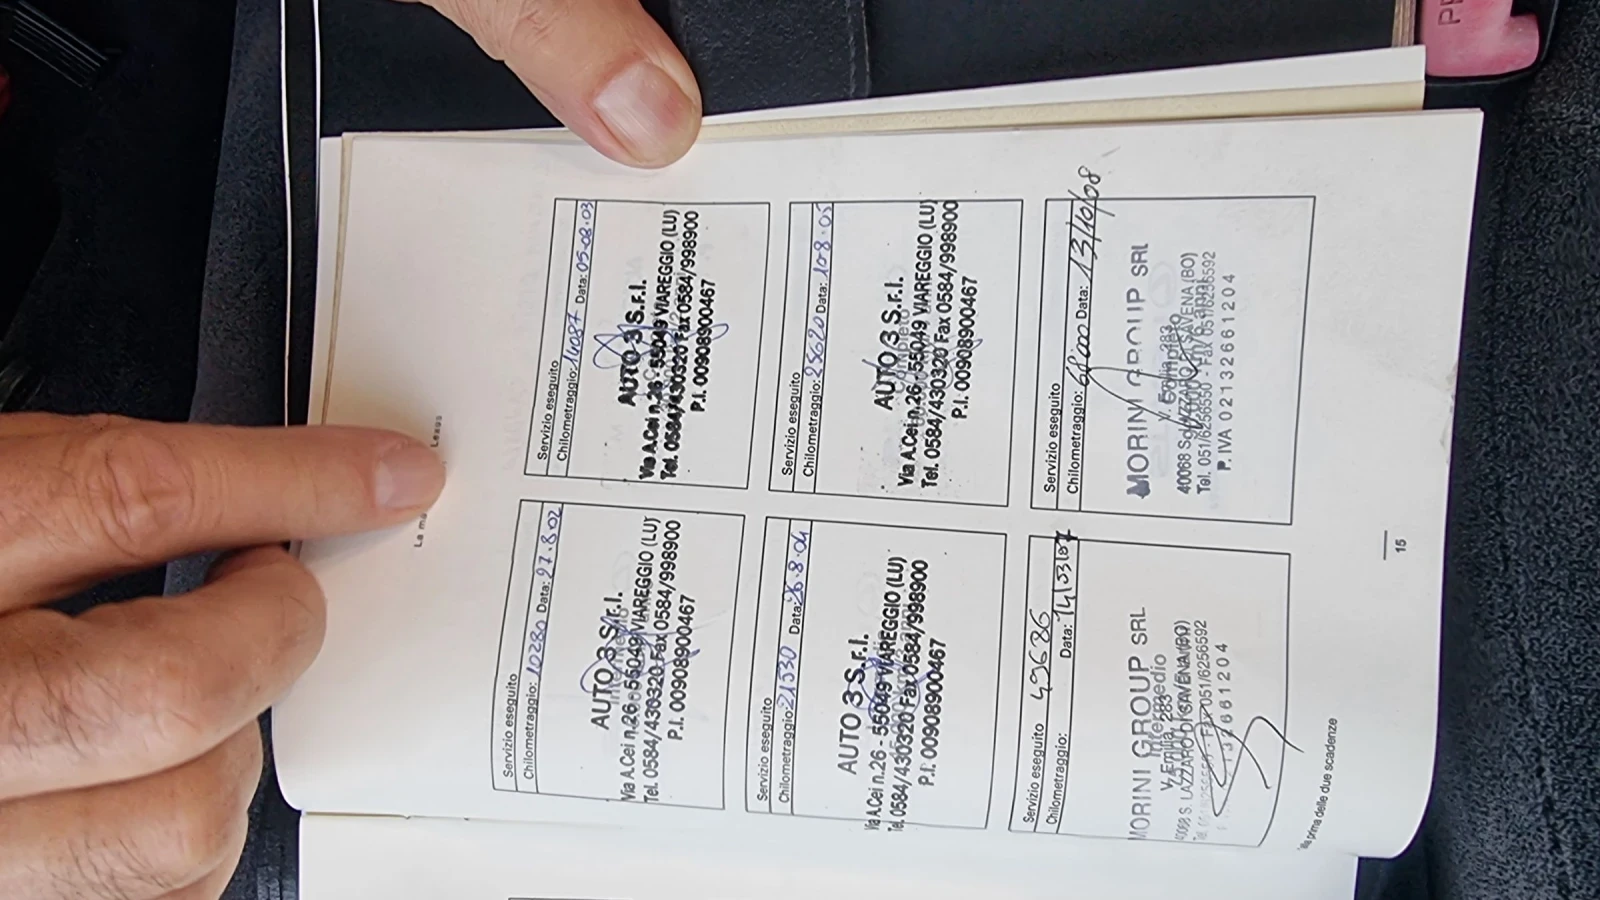 Lexus
Servizio eseguito
Chilometraggio: 10280 Data: 27.8.02
AUTO 3 S.r.l.
Via A.Cei n.26 - 55049 VIAREGGIO (LU)
Tel. 0584/430320 Fax 0584/998900
P.I. 00908900467
Servizio eseguito
Chilometraggio: 14087 Data: 05-08-03
AUTO 3 S.r.l.
Via A.Cei n.26 - 55049 VIAREGGIO (LU)
Tel. 0584/430320 Fax 0584/998900
P.I. 00908900467
Servizio eseguito
Chilometraggio: 21330 Data: 26.8.04
AUTO 3 S.r.l.
Via A.Cei n.26 - 55049 VIAREGGIO (LU)
Tel. 0584/430320 Fax 0584/998900
P.I. 00908900467
Servizio eseguito
Chilometraggio: 25620 Data: 10.8.05
AUTO 3 S.r.l.
Via A.Cei n.26 - 55049 VIAREGGIO (LU)
Tel. 0584/430320 Fax 0584/998900
P.I. 00908900467
Servizio eseguito 49686
Chilometraggio: Data: 14/03/07
MORINI GROUP SRL
Intermedio
V. Emilia, 283
40068 S. LAZZARO DI SAVENA (BO)
Fax 051/6256592
Servizio eseguito
Chilometraggio: 68000 Data: 13/10/08
MORINI GROUP SRL
V. Emilia, 283
Completo
40068 S. LAZZARO DI SAVENA (BO)
Tel. 051/6256550 - Fax 051/6256592
P. IVA 02132661204
prima delle due scadenze
15